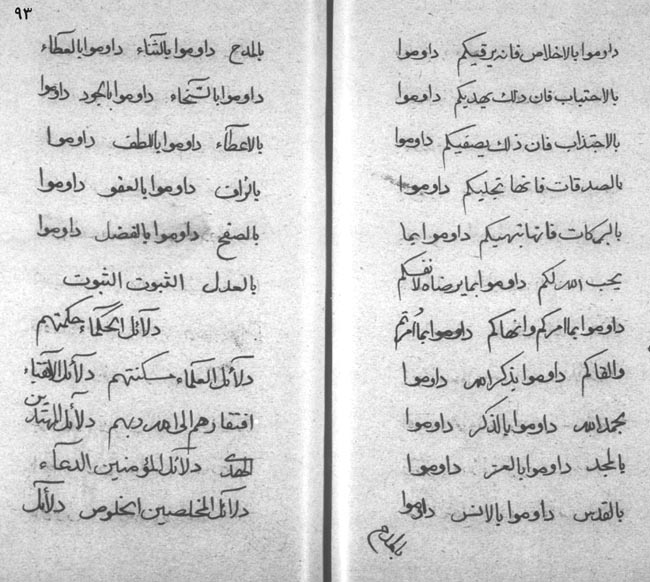 داوموا بالاخلاص فانه يرقيكم داوموا
بالاحتباب فان ذلك يهديكم داوموا
بالاجتذاب فان ذلك يصفيكم داوموا
بالصدقات فانها تجليكم داوموا
بالبركات فانها تهيكم داوموا بما
يحب الله لكم داوموا بما يرضاه لانفسكم
داوموا بما امركم وانهاكم داوموا بما امرتم
والقاكم داوموا بذكر الله داوموا
بحمد الله داوموا بالذكر داوموا
بالمجد داوموا بالعز داوموا
بالقدس داوموا بالانس داوموا
بالمدح
٩٣
بالمدح داوموا بالثناء داوموا بالعطاء
داوموا بالسخاء داوموا بالجود داوموا
بالاعطاء داوموا باللطف داوموا
بالرأف داوموا بالعفو داوموا
بالصفح داوموا بالفضل داوموا
بالعدل الثبوت الثبوت
دلائل الحكماء حكمتهم
دلائل العلماء سكنتهم دلائل الاتقياء
افتقارهم الى الله ربهم دلائل المهتدين
الهدى دلائل المؤمنين الدعاء
دلائل المخلصين الخلوص دلائل